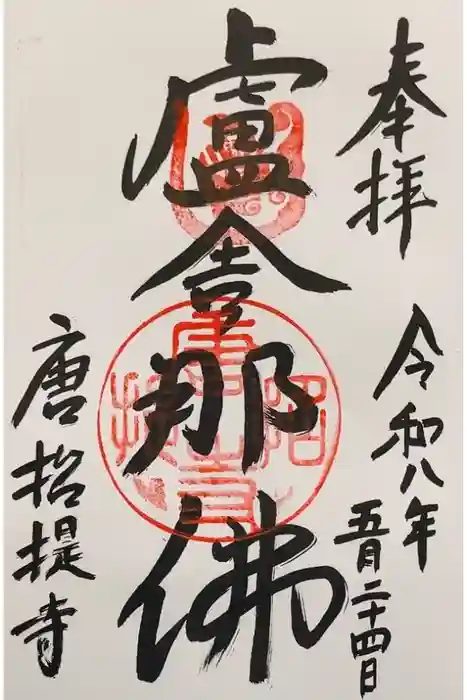 奉拝
令和八年
五月二十四日
盧舎那佛
唐招提寺